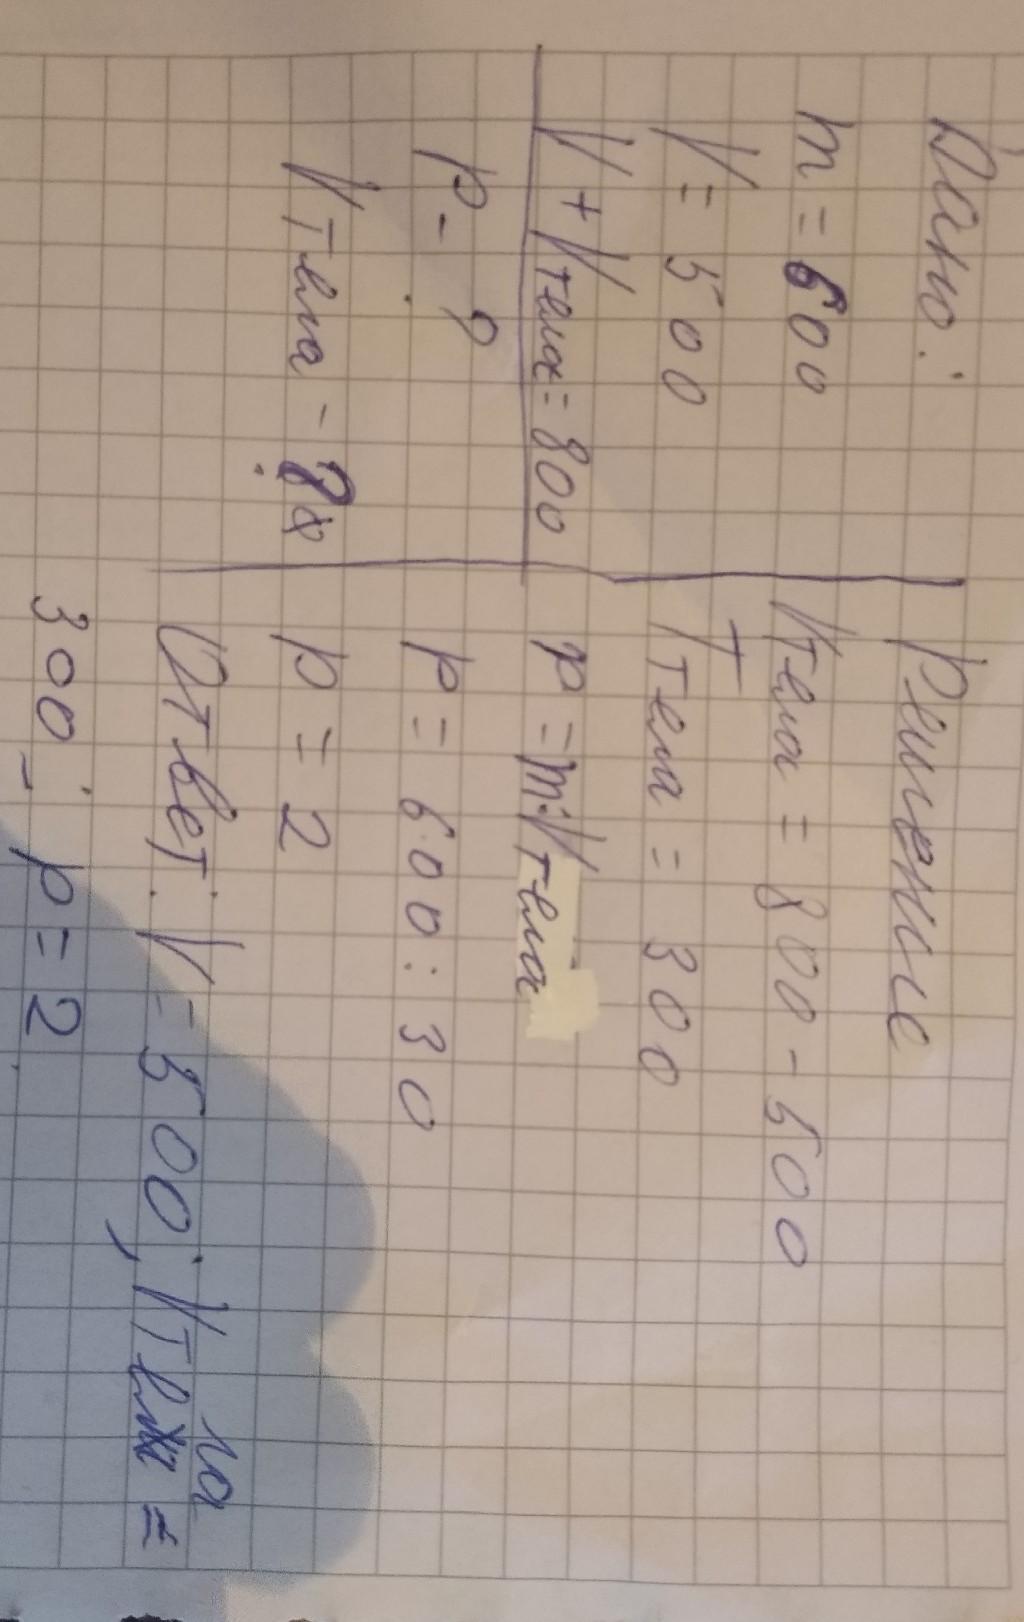 Дано:
m = 600
V = 500
V + Vтела = 800
p - ?
Vтела - ?
Решение
Vтела = 800 - 500
Vтела = 300
p = m:Vтела
p = 600 : 30
p = 2
Ответ: V = 500; Vтела =
300; p = 2